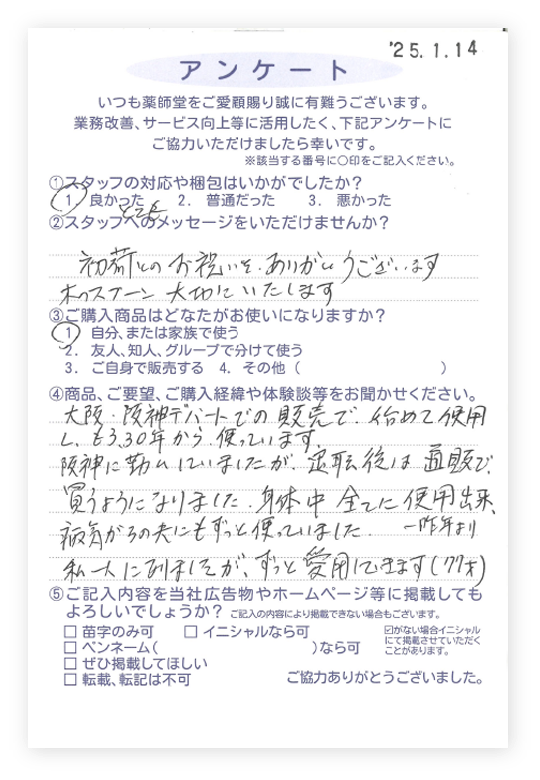 '25.1.14
アンケート
いつも薬師堂をご愛顧賜り誠に有難うございます。
業務改善、サービス向上等に活用したく、下記アンケートに
ご協力いただけましたら幸いです。
※該当する番号に○印をご記入ください。
①スタッフの対応や梱包はいかがでしたか?
1 良かった 2. 普通だった 3. 悪かった
②スタッフへのメッセージをいただけませんか?
初荷とのお祝いを、ありがとうございます
木のスプーン 大切にいたします
③ご購入商品はどなたがお使いになりますか?
1 自分、または家族で使う
2. 友人、知人、グループで分けて使う
3. ご自身で販売する 4. その他( )
④商品、ご要望、ご購入経緯や体験談等をお聞かせください。
大阪・阪神デパートでの販売で、始めて使用
し、もう30年から、使っています。
阪神に勤ムしていましたが、退転後は直販で、
買うようになりました。身体中全てに使用出来、
病気がちの夫にもずっと使っていました。一昨年より
私一人になりましたが、ずっと愛用してきます(77才)
⑤ご記入内容を当社広告物やホームページ等に掲載しても
よろしいでしょうか? ご記入の内容により掲載できない場合もございます。
□ 苗字のみ可 □ イニシャルなら可
□ ペンネーム( )なら可
□ ぜひ掲載してほしい
□ 転載、転記は不可
☑がない場合イニシャル
にて掲載させていただく
ことがあります。
ご協力ありがとうございました。